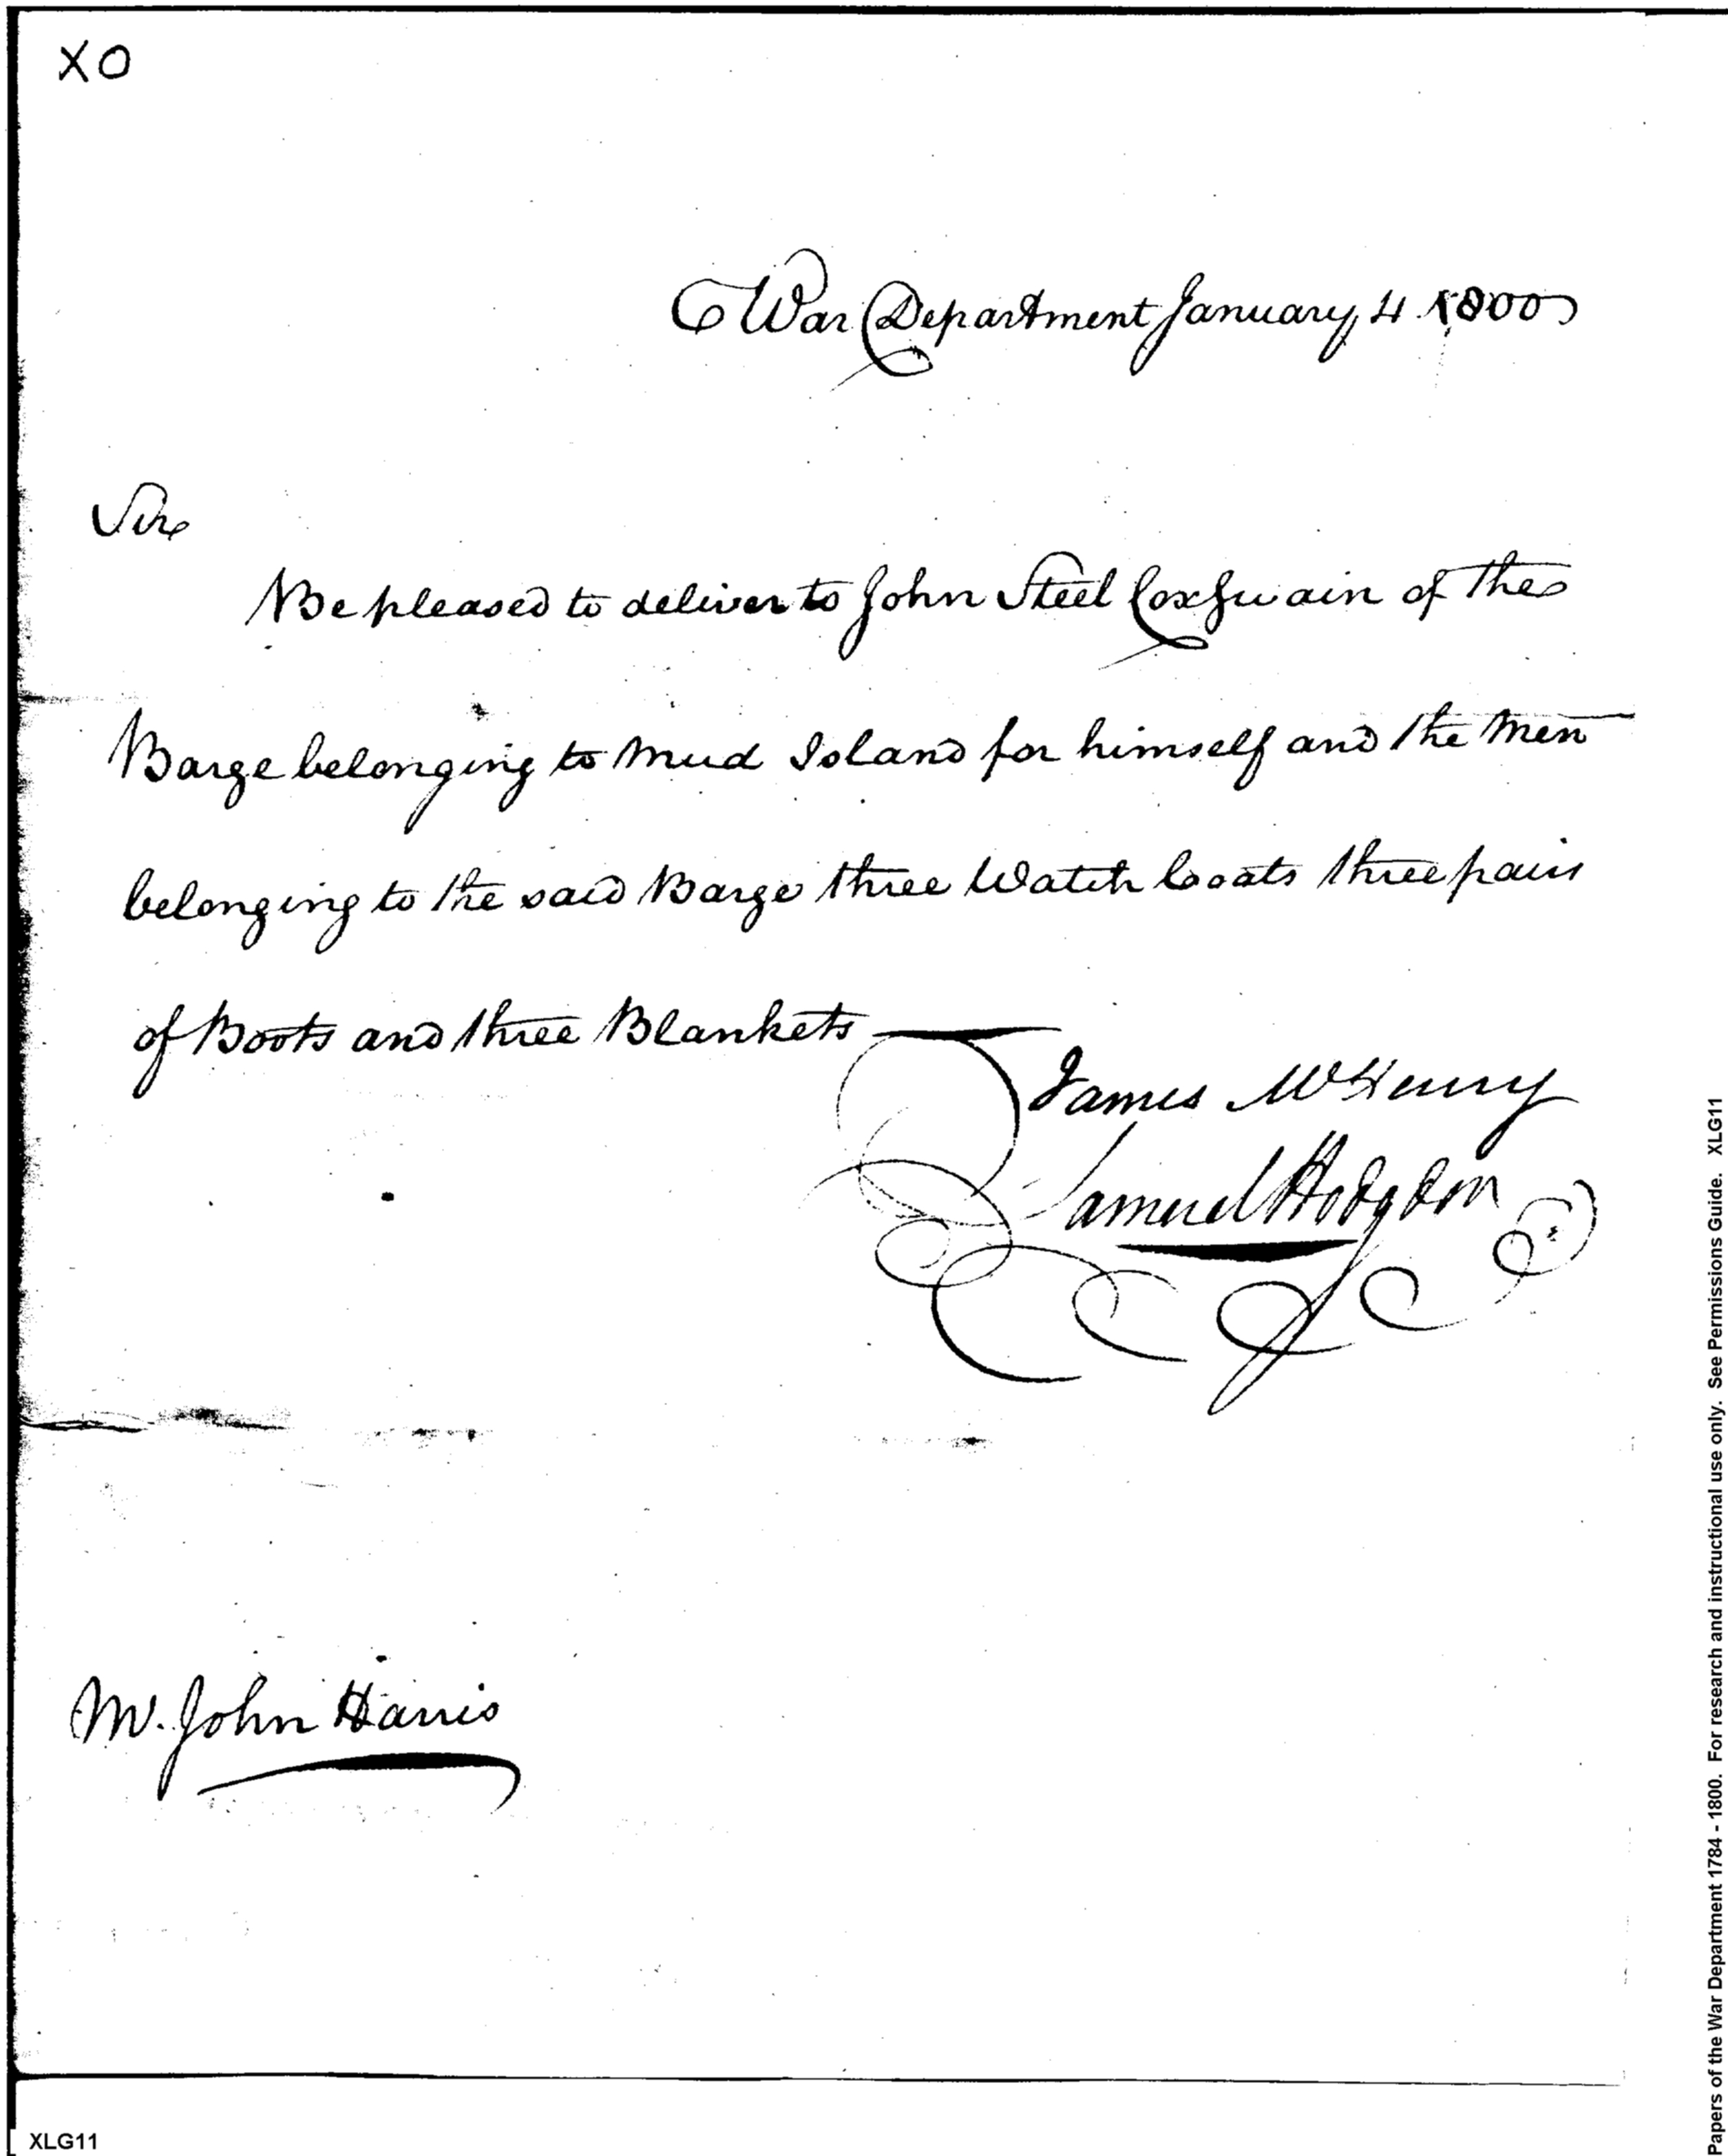 XO
War Department January 4 1800
Sir
Be pleased to deliver to John Steel Coxswain of the
Barge belonging to Mud Island for himself and the Men
belonging to the said Barge three Watch Coats three pair
of Boots and three Blankets
James McHenry
Samuel Hodgdon
Mr. John Harris
XLG11
Papers of the War Department 1784 - 1800. For research and instructional use only. See Permissions Guide. XLG11